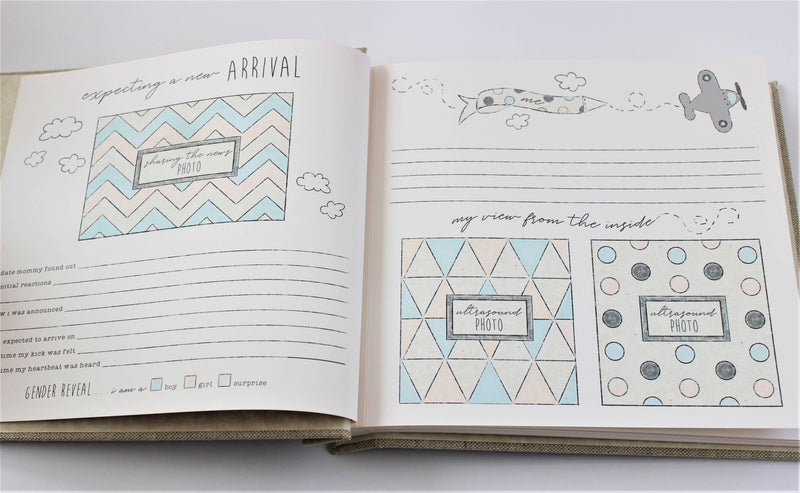 expecting a new ARRIVAL
sharing the news
PHOTO
date mommy found out
initial reactions
i was announced
expected to arrive on
time my kick was felt
time my heartbeat was heard
GENDER REVEAL . . . i am a boy girl surprise
me
my view from the inside
ultrasound
PHOTO
ultrasound
PHOTO